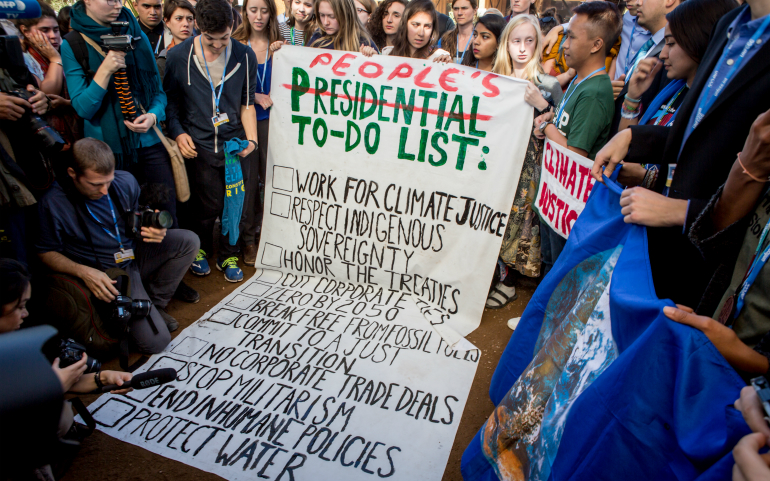 PEOPLE'S
PRESIDENTIAL
TO-DO LIST:
WORK FOR CLIMATE JUSTICE
RESPECT INDIGENOUS
SOVEREIGNTY
HONOR THE TREATIES
CUT CORPORATE TIES
ZERO BY 2050
BREAK FREE FROM FOSSIL FUELS
COMMIT TO A JUST
TRANSITION
NO CORPORATE TRADE DEALS
STOP MILITARISM
END INHUMANE POLICIES
PROTECT WATER
CLIMATE
JUSTICE
AFP
RODE